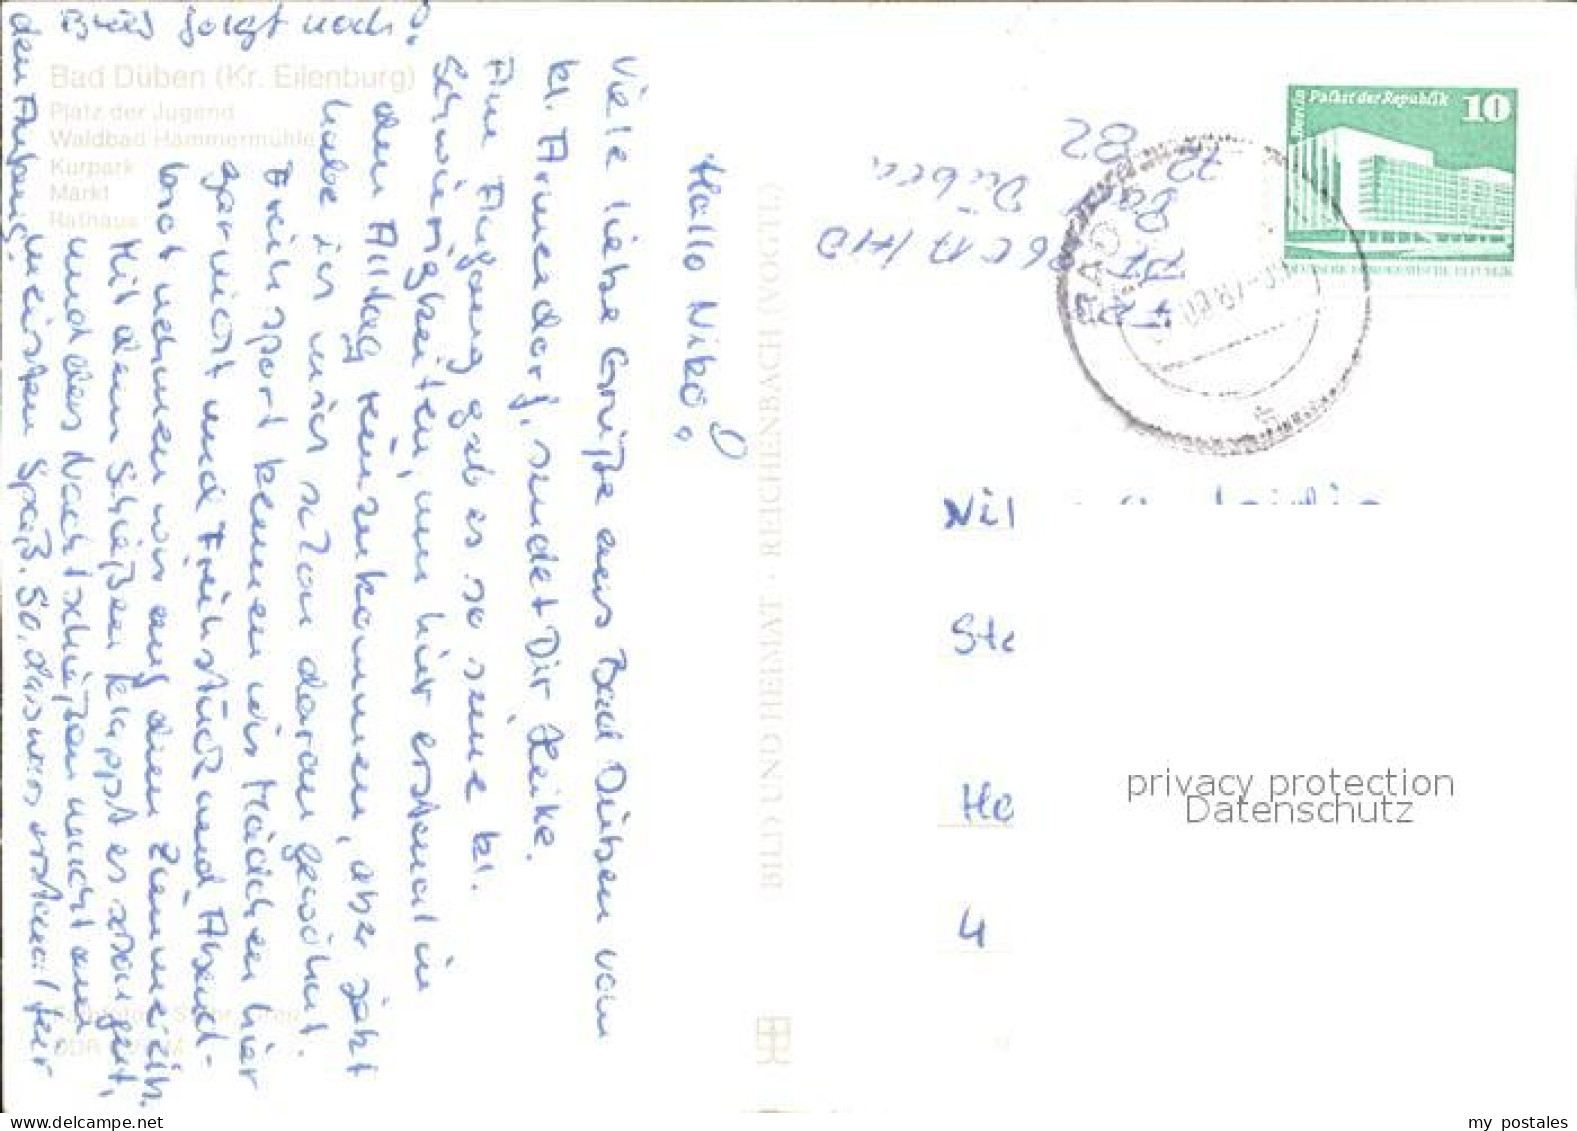 Hallo Niko!
Viele liebe Grüße aus Bad Düben vom
kl. Armeedorf, sendet Dir Heike.
Am Anfang gab es so seine kl.
Schwierigkeiten, um hier erstmal in
den Alltag reinzukommen, aber jetzt
habe ich mich schon daran gewöhnt.
Frühsport kennen wir Mädchen hier
garnicht und Frühstück und Abend-
brot nehmen wir auf dem Zimmer ein.
Mit dem Schießen klappt es schon gut,
und das Nachtschießen macht am
meisten Spaß. So, das wars erstmal für
den Anfang.
Brief folgt noch!
Bad Düben (Kr. Eilenburg)
Platz der Jugend
Waldbad Hammermühle
Kurpark
Markt
Rathaus
BILD UND HEIMAT · REICHENBACH (VOGTL)
Berlin Palast der Republik 10
DEUTSCHE DEMOKRATISCHE REPUBLIK
82
72
Düben
Nil
Ste
He
4
privacy protection
Datenschutz
my postales